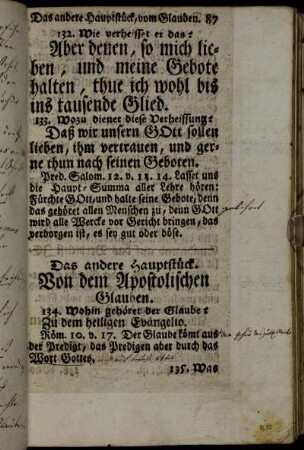 Das andere Hauptstück, vom Glauben. 87
132. Wie verheisset er das?
Aber denen, so mich lie-
ben, und meine Gebote
halten, thue ich wohl bis
ins tausende Glied.
133. Wozu dienet diese Verheissung?
Daß wir unsern GOtt sollen
lieben, ihm vertrauen, und ger-
ne thun nach seinen Geboten.
Pred. Salom. 12. v. 13. 14. Lasset uns
die Haupt-Summa aller Lehre hören:
Fürchte GOtt, und halte seine Gebote, denn
das gehöret allen Menschen zu, denn GOtt
wird alle Wercke vor Gericht bringen, das
verborgen ist, es sey gut oder böse.
Das andere Hauptstück.
Von dem Apostolischen
Glauben.
134. Wohin gehöret der Glaube?
Zu dem heiligen Evangelio.
Röm. 10. v. 17. Der Glaube kömt aus
der Predigt, das Predigen aber durch das
Wort Gottes.
135. Was